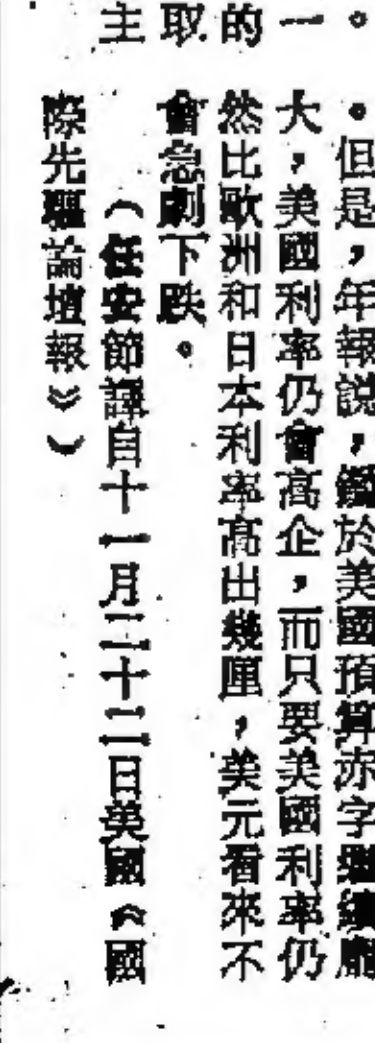 。
一
的
取
主
。但是，年報說，鑑於美國預算赤字繼續龐
大，美國利率仍會高企，而只要美國利率仍
然比歐洲和日本利率高出幾厘，美元看來不
會急劇下跌。
（任安節譯自十一月二十二日美國《國
際先驅論壇報》）